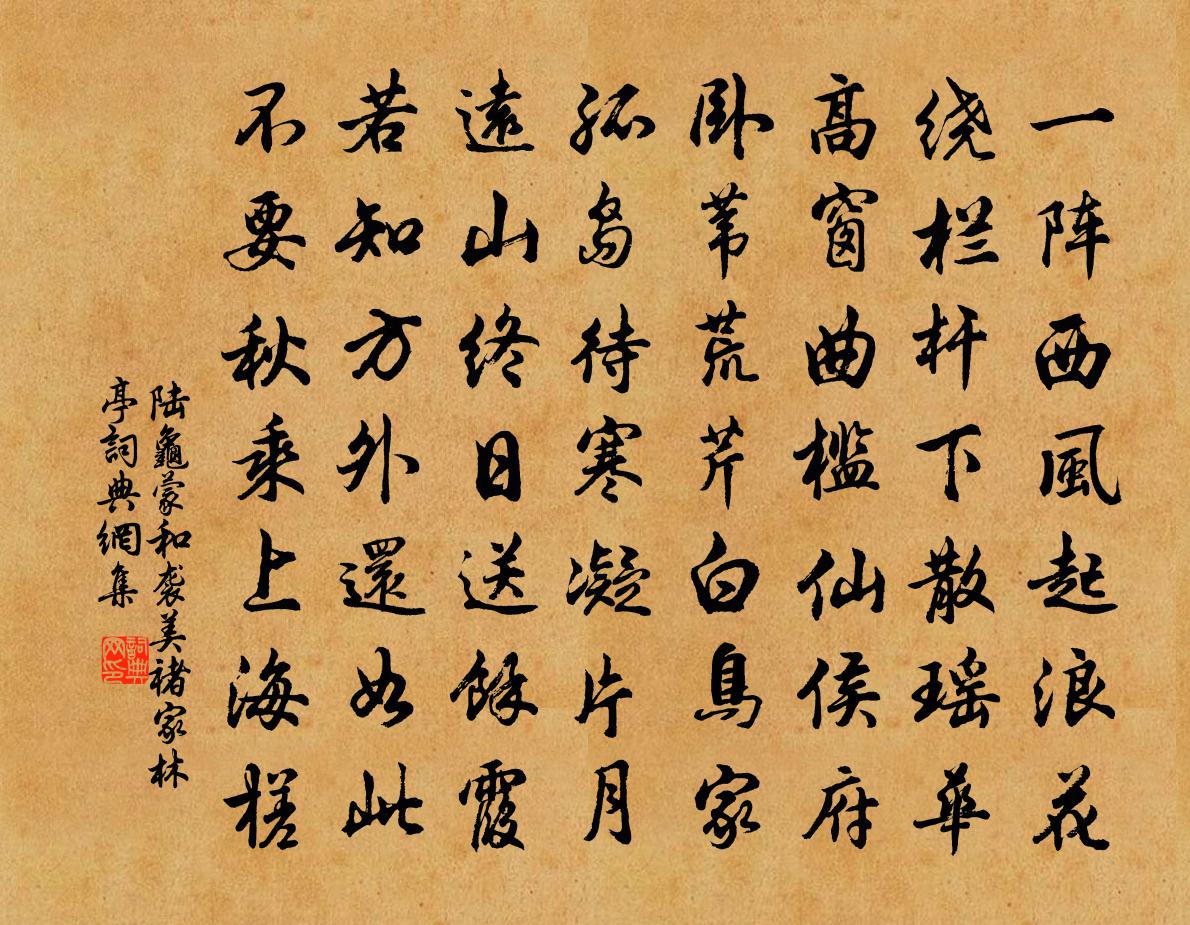 一阵西風起浪花
绕栏杆下散瑶華
高窗曲槛仙侯府
卧苇荒芹白鳥家
孤島待寒凝片月
遠山終日送餘霞
若知方外還如此
不要秋乘上海槎
陸龜蒙和袭美褚家林
亭詞典網集
詞典
网印